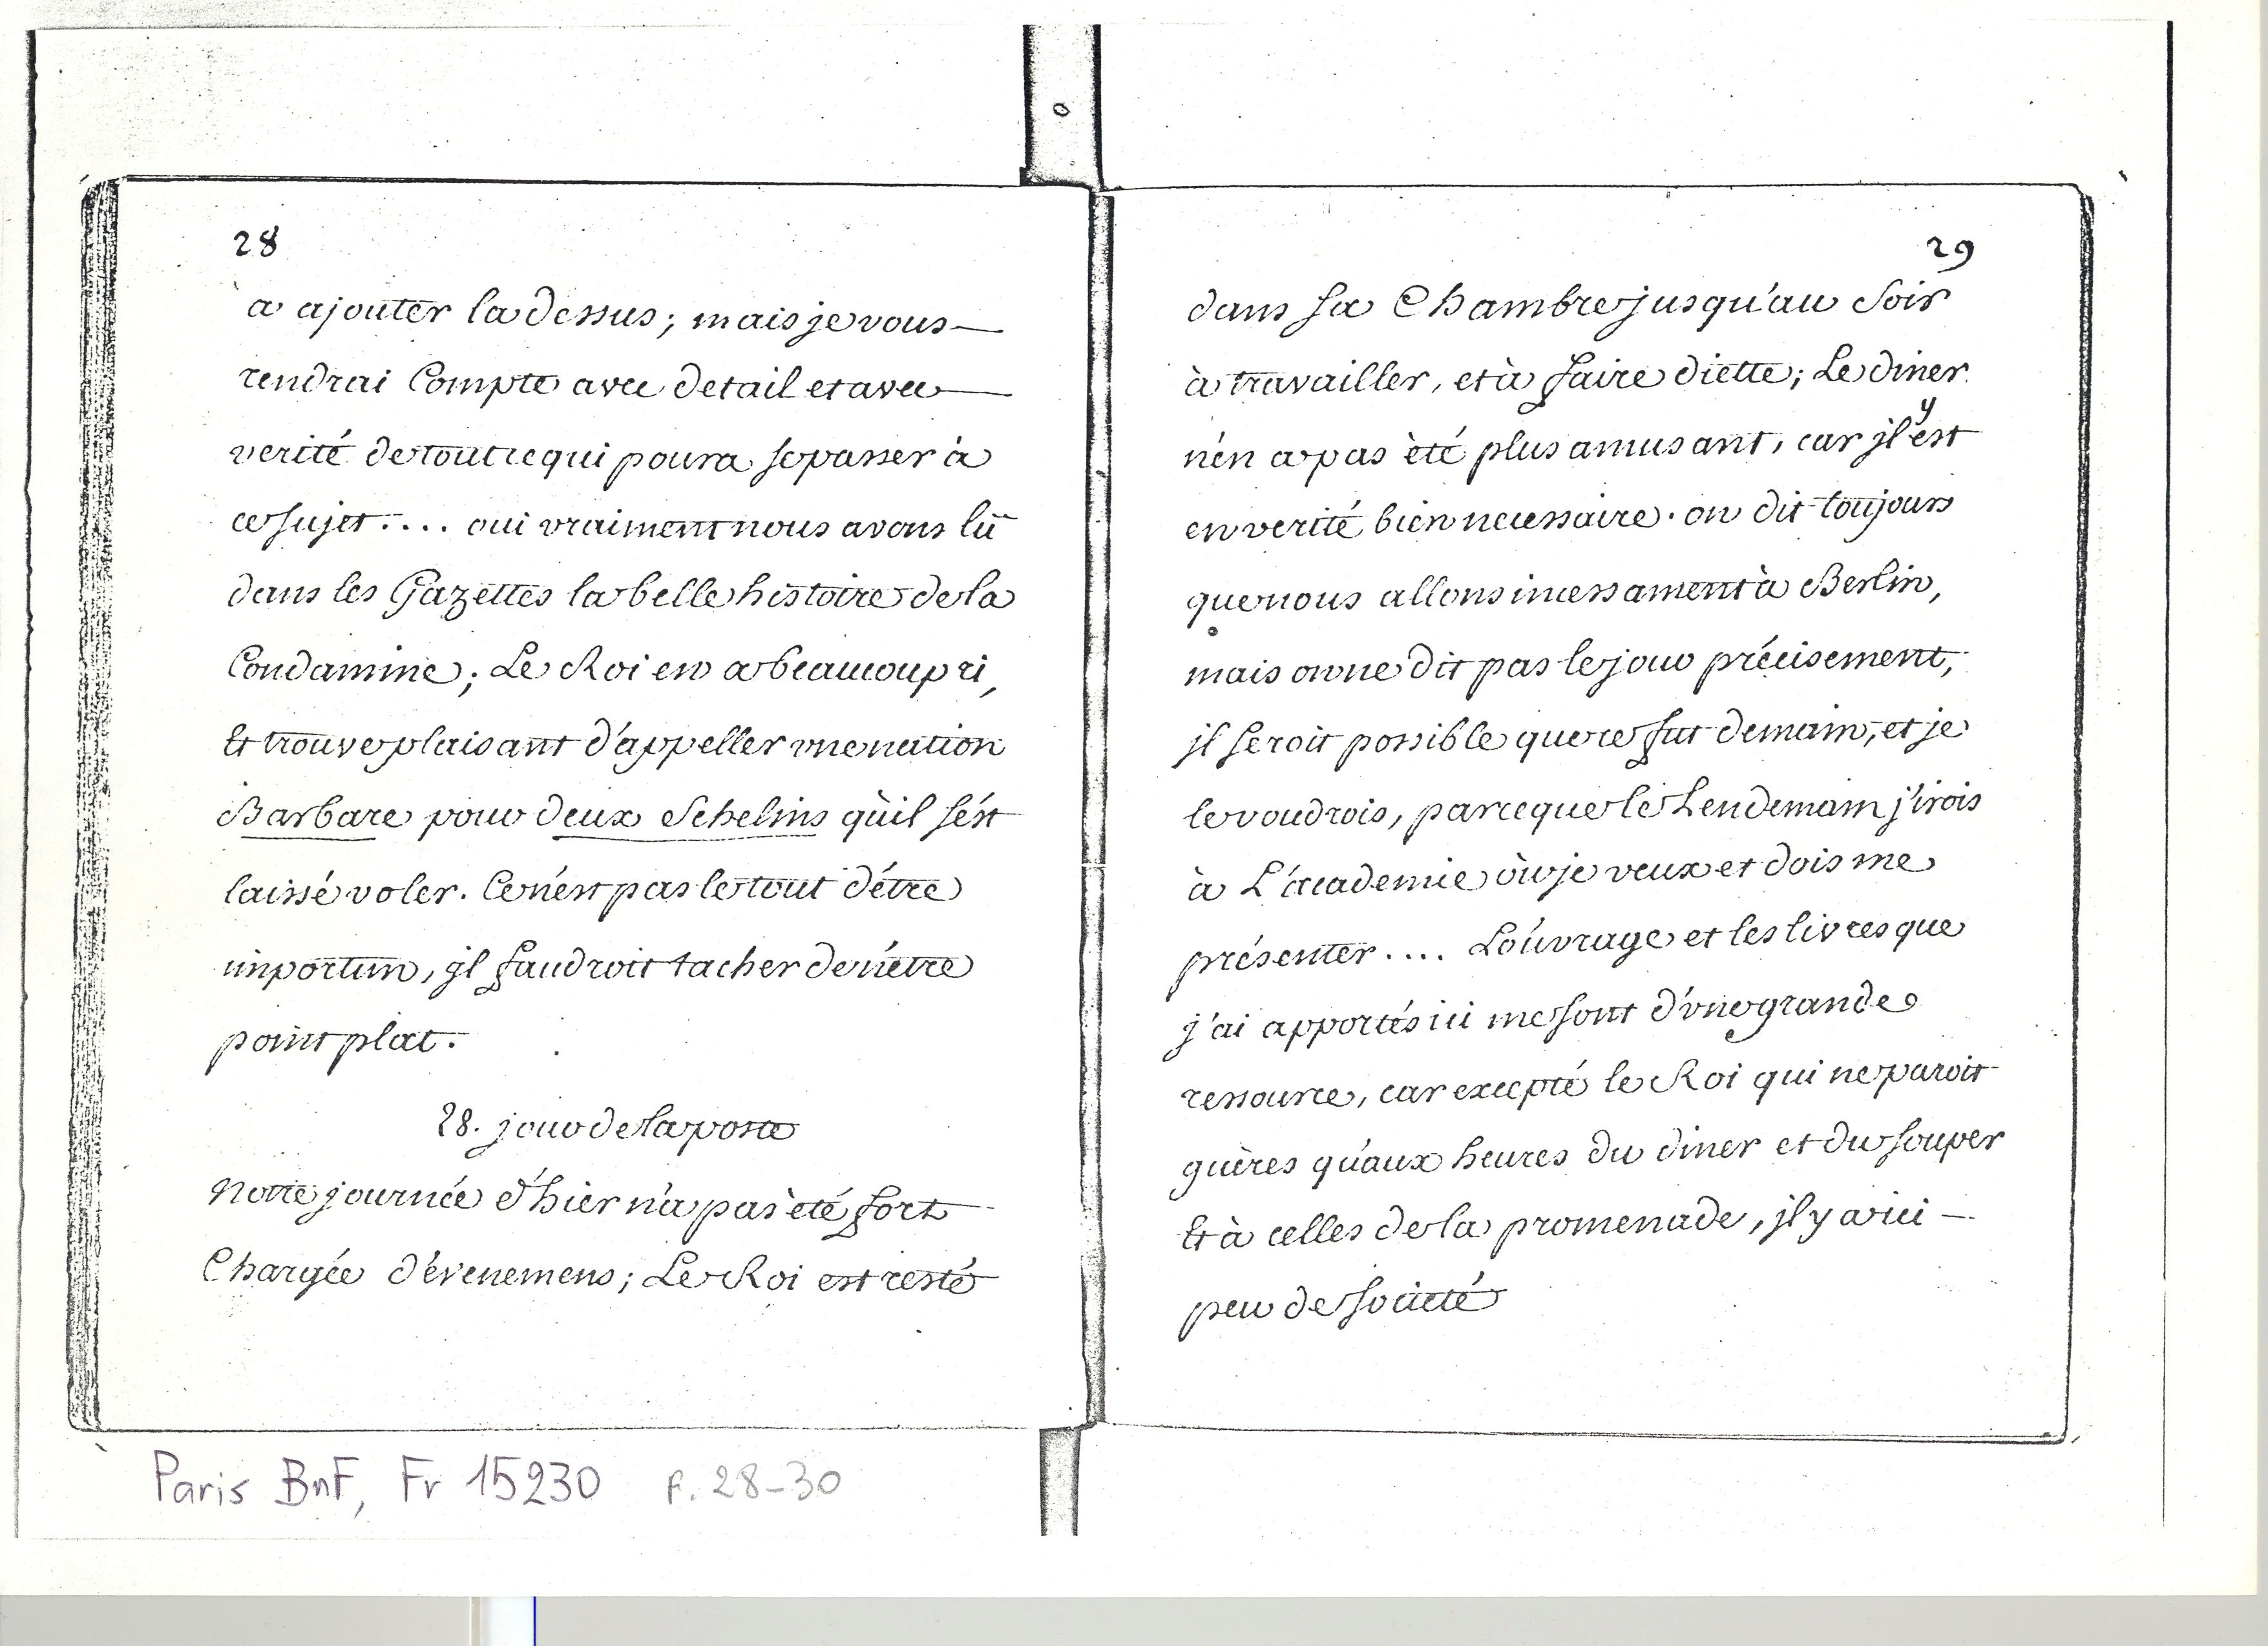 28
a ajouter la dessus; mais je vous—
rendrai Compte avec detail et avec—
verité de tout ce qui poura se passer à
ce sujet.... oui vraiment nous avons lû
dans les Gazettes la belle histoire de la
Condamine; Le Roi en a beaucoup ri,
Et trouve plaisant d'appeller une nation
Barbare pour deux Schelins qu'il s'ést
laissé voler. Ce n'ést pas le tout d'étre
importun, jl faudroit tacher de n'étre
point plat.
28. jour de la poste
Notre journée d'hier n'a pas èté fort
Chargée d'évenemens; Le Roi est resté
29
dans sa Chambre jusqu'au Soir
à travailler, et à faire diette; Le diner
n'én a pas èté plus amusant, car jl y est
en verité bien necessaire. on dit toujours
que nous allons incessament à Berlin,
mais on ne dit pas le jour précisement,
jl seroit possible que ce fut demain, et je
le voudrois, parce que le Lendemain j'irois
à L'académie où je veux et dois me
présenter.... L'oúvrage et les livres que
j'ai apportés ici me sont d'une grande
ressource, car excepté le Roi qui ne paroit
guères qu'aux heures du diner et du souper
Et à celles de la promenade, jl y a ici —
peu de societé
Paris BnF, Fr 15230 f. 28-30